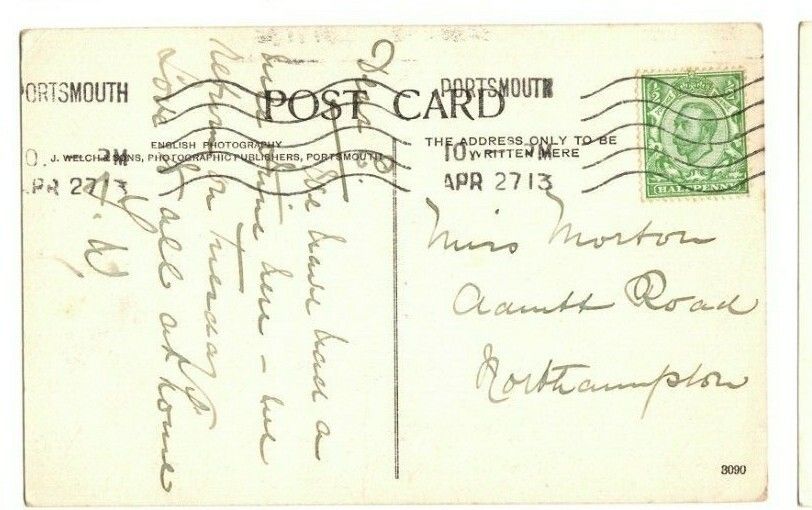 PORTSMOUTH
10. PM
APR 27 13
PORTSMOUTH
10. PM
APR 27 13
POST CARD
ENGLISH PHOTOGRAPHY
J. WELCH & SONS, PHOTOGRAPHIC PUBLISHERS, PORTSMOUTH
THE ADDRESS ONLY TO BE
WRITTEN HERE
HALFPENNY
Dear
We have had a
time here - we
return on Tuesday
Love to all at home
Miss Morton
Road
Northampton
3090